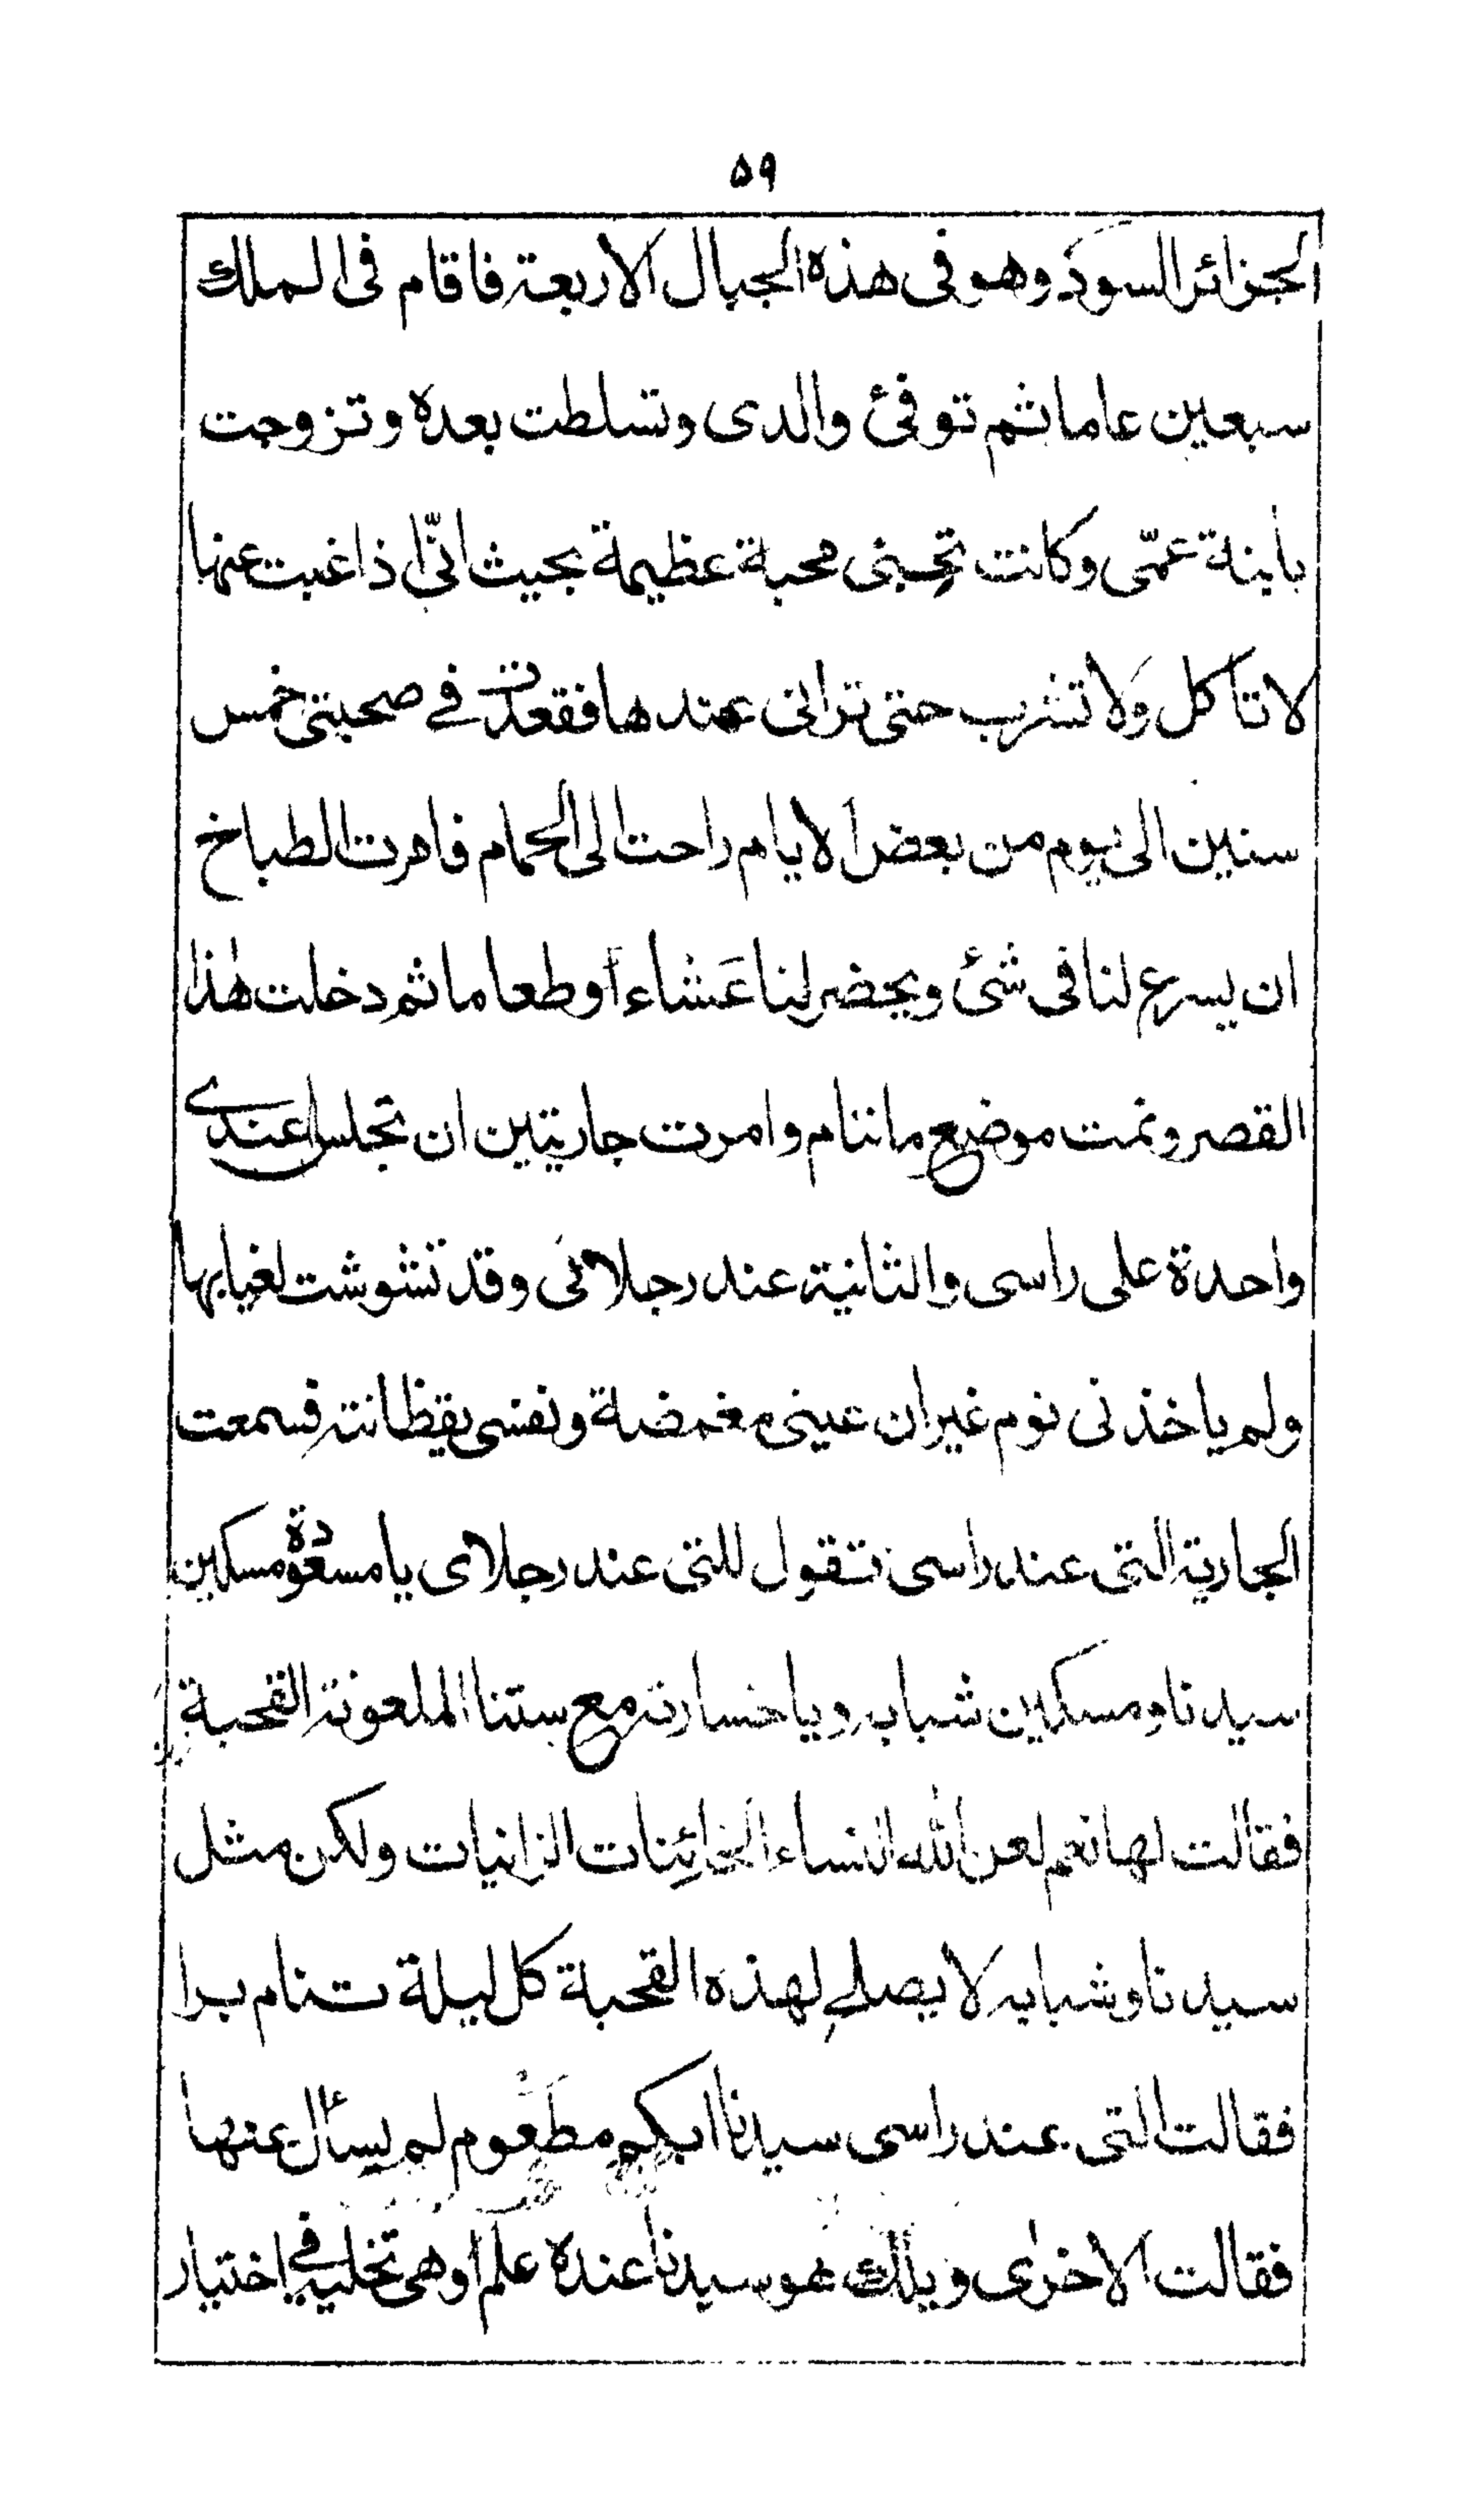 ٥٩
الجزائر السود وهو فى هذه الجبال الاربعة فاقام فى الملك
سبعين عاما ثم توفئ والدى وتسلطت بعده وتزوجت
بابنة عمّى وكانت تحبنى محبة عظيمة بحيث انّى اذا غبت عنها
لا تأكل ولا تشرب حتى ترانى عندها فقعدت فے صحبتى خمس
سنين الى يوم من بعض الايام راحت الى الحمام فامرت الطباخ
ان يسرع لنا فى شئ ويحضر لنا عَشاء أو طعاما ثم دخلت هٰذا
القصر ونمت موضع ما ننام وامرت جاريتين ان تجلسا عندے
واحدة على راسى والثانية عند رجلائى وقد تشوشت لغيابها
ولم ياخذنى نوم غير ان عينى مغمضة ونفسى يقظانة فسمعت
الجارية التى عند راسى تقول للتى عند رجلاى يا مسعودة مسكين
سيدنا ومسكين شبابه ويا خسارته مع ستنا الملعونة القحبة
فقالت لها نعم لعن الله النساء الخائِنات الزانيات ولكن مثل
سيدنا وشبابه لا يصلح لهذه القحبة كل ليلة تنام برا
فقالت التى عند راسى سيدنا ابكم مطعوم لم يسأل عنها
فقالت الاخرٰى ويلك هو سيدنا عنده علم أو هى تخليه فے اختيار